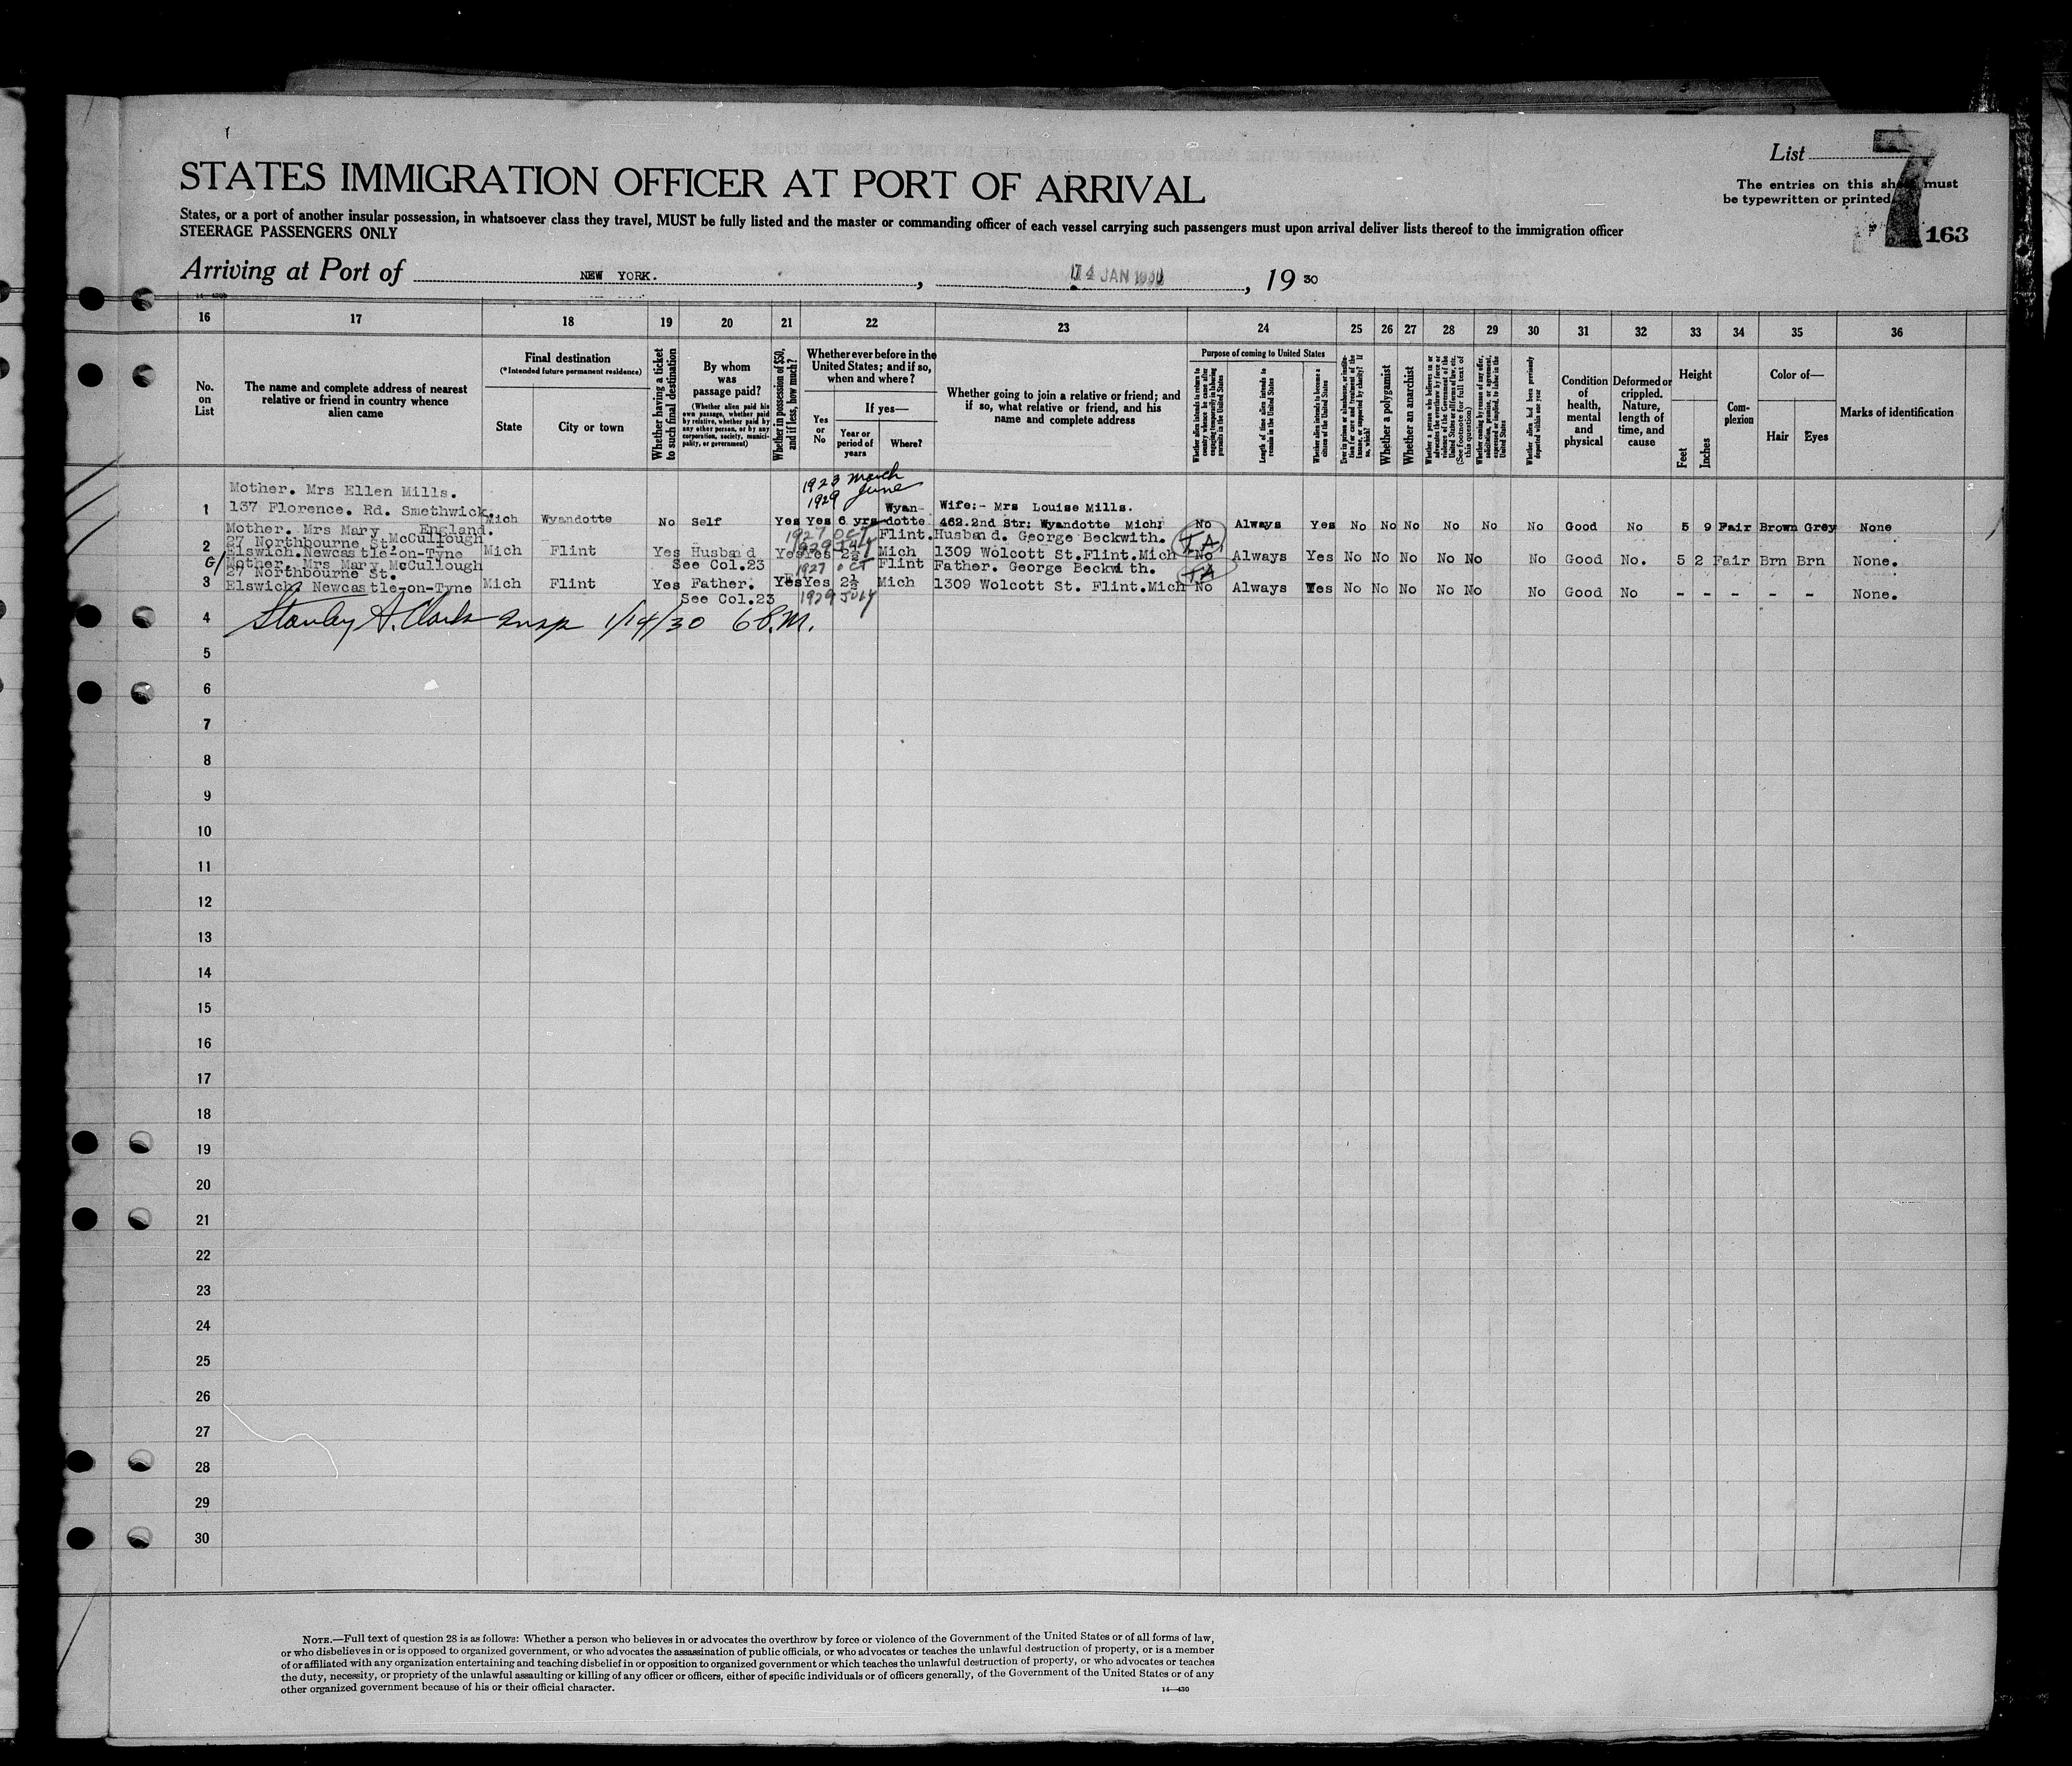 List 7
The entries on this sheet must
be typewritten or printed.
163
STATES IMMIGRATION OFFICER AT PORT OF ARRIVAL
States, or a port of another insular possession, in whatsoever class they travel, MUST be fully listed and the master or commanding officer of each vessel carrying such passengers must upon arrival deliver lists thereof to the immigration officer
STEERAGE PASSENGERS ONLY
Arriving at Port of NEW YORK. , 14 JAN 1930 , 19 30
16 17 18 19 20 21 22 23 24 25 26 27 28 29 30 31 32 33 34 35 36
No. on List
The name and complete address of nearest relative or friend in country whence alien came
Final destination
(*Intended future permanent residence)
State
City or town
Whether having a ticket to such final destination
By whom was passage paid?
(Whether alien paid his own passage, whether paid by relative, whether paid by any other person, or by any corporation, society, municipality, or government)
Whether in possession of $50, and if less, how much?
Whether ever before in the United States; and if so, when and where?
Yes or No
If yes—
Year or period of years
Where?
Whether going to join a relative or friend; and if so, what relative or friend, and his name and complete address
Purpose of coming to United States
Whether alien intends to return to country whence he came after engaging temporarily in laboring pursuits in the United States
Length of time alien intends to remain in the United States
Whether alien intends to become a citizen of the United States
Ever in prison or almshouse, or institution for care and treatment of the insane, or supported by charity? If so, which?
Whether a polygamist
Whether an anarchist
Whether a person who believes in or advocates the overthrow by force or violence of the Government of the United States or all forms of law, etc. (See footnote for full text of this question)
Whether coming by reason of any offer, solicitation, promise, or agreement, expressed or implied, to labor in the United States
Whether alien had been previously deported within one year
Condition of health, mental and physical
Deformed or crippled. Nature, length of time, and cause
Height
Feet
Inches
Complexion
Color of—
Hair
Eyes
Marks of identification
1923 March
1929 June
Mother. Mrs Ellen Mills.
137 Florence. Rd. Smethwick.
England.
1 Mich Wyandotte No Self Yes Yes 6 yrs Wyandotte Wife:- Mrs Louise Mills. 462.2nd Str: Wyandotte Mich: No Always Yes No No No No No No Good No 5 9 Fair Brown Grey None
1927 OCT
1929 July
Mother. Mrs Mary McCullough.
27 Northbourne St.
Elswich.Newcastle-on-Tyne
2 Mich Flint Yes Husband See Col.23 Yes Yes 2½ Flint. Mich Husband. George Beckwith. 1309 Wolcott St.Flint.Mich TA No Always Yes No No No No No No Good No. 5 2 Fair Brn Brn None.
G/
1927 OCT
Mother. Mrs Mary McCullough
27 Northbourne St.
Elswich Newcastle-on-Tyne
3 Mich Flint Yes Father. See Col.23 Yes Yes 2½ Flint Mich Father. George Beckwith. 1309 Wolcott St. Flint.Mich TA No Always Yes No No No No No No Good No - - - - - None.
1929 JULY
4 Stanley A. Clark Insp 1/14/30
5
6
7
8
9
10
11
12
13
14
15
16
17
18
19
20
21
22
23
24
25
26
27
28
29
30
NOTE.—Full text of question 28 is as follows: Whether a person who believes in or advocates the overthrow by force or violence of the Government of the United States or of all forms of law,
or who disbelieves in or is opposed to organized government, or who advocates the assassination of public officials, or who advocates or teaches the unlawful destruction of property, or is a member
of or affiliated with any organization entertaining and teaching disbelief in or opposition to organized government or which teaches the unlawful destruction of property, or who advocates or teaches
the duty, necessity, or propriety of the unlawful assaulting or killing of any officer or officers, either of specific individuals or of officers generally, of the Government of the United States or of any
other organized government because of his or their official character.
14—430